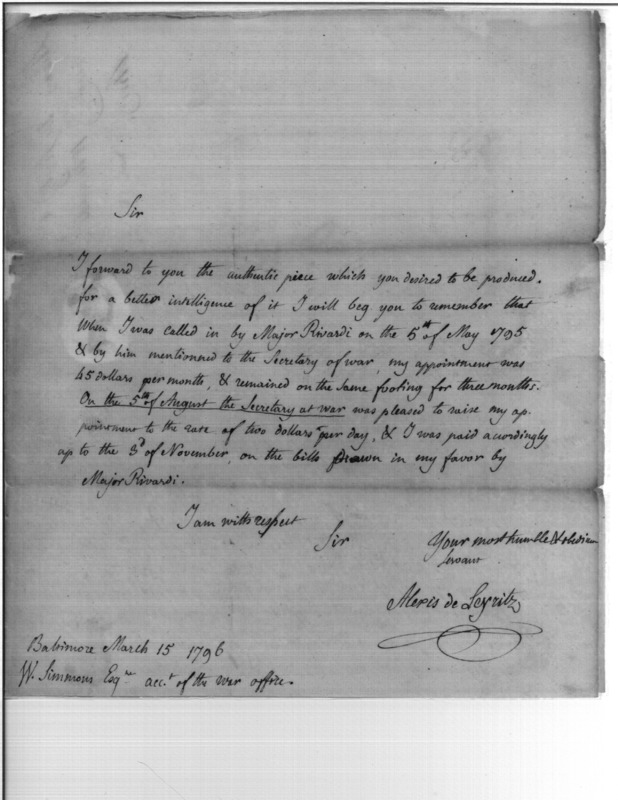 Sir
I forward to you the authentic piece which you desired to be produced.
for a better intelligence of it I will beg you to remember that
When I was called in by Major Rivardi on the 5th of May 1795
& by him mentionned to the Secretary of war, my appointment was
45 dollars per month, & remained on the same footing for three months.
On the 5th of August the Secretary at war was pleased to raise my ap-
pointment to the rate of two dollars per day, & I was paid acordingly
up to the 3d of November, on the bills Drawn in my favor by
Major Rivardi.
I am with respect
Sir
Your most humble & obedient
Servant
Alexis de Leyritz
Baltimore March 15 1796
W. Simmons Esqre acct of the war office.